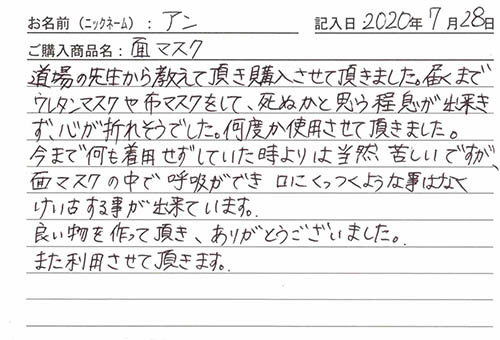 お名前（ニックネーム）：アン 記入日 2020年7月28日
ご購入商品名：面マスク
道場の先生から教えて頂き購入させて頂きました。届くまで
ウレタンマスクや布マスクをして、死ぬかと思う程息が出来き
ず、心が折れそうでした。何度か使用させて頂きました。
今まで何も着用せずしていた時よりは当然苦しいですが、
面マスクの中で呼吸ができ 口にくっつくような事はなく
けい古する事が出来ています。
良い物を作って頂き、ありがとうございました。
また利用させて頂きます。